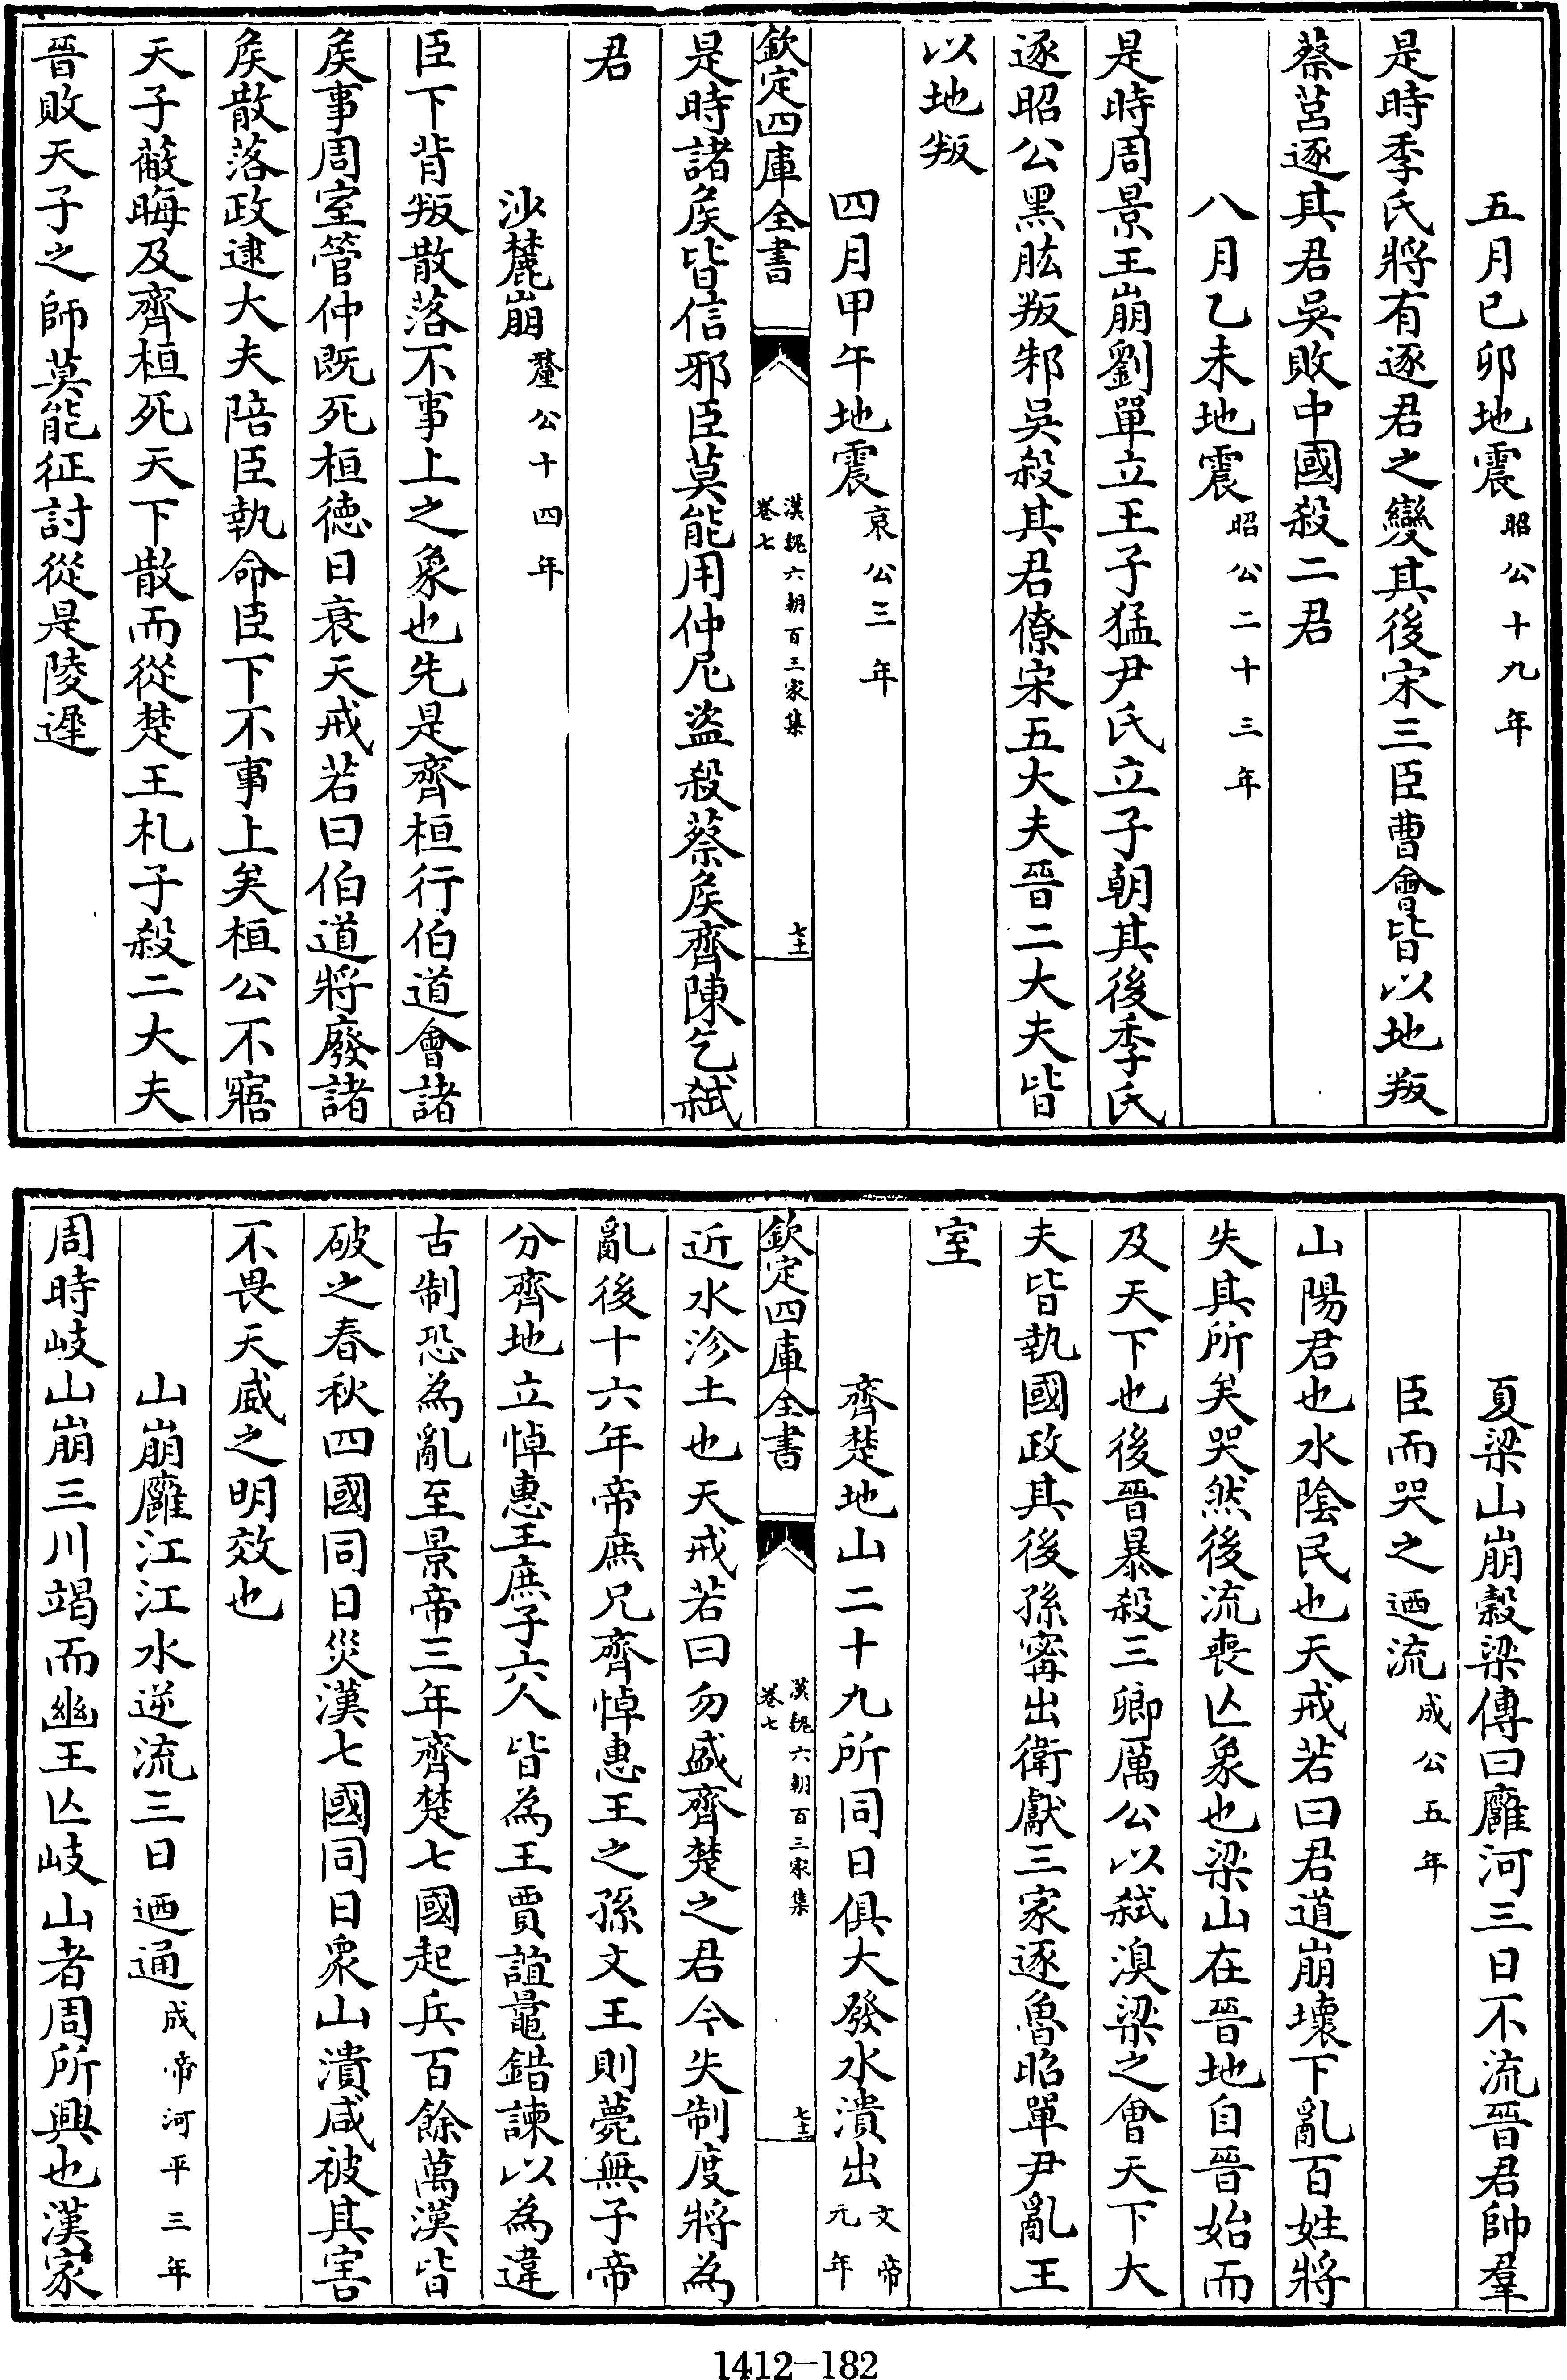 五月已卯地震昭公十九年
是時季氏將有逐君之變其後宋三臣曹會皆以地叛
蔡莒逐其君吳敗中國殺二君
八月乙未地震昭公二十三年
是時周景王崩劉單立王子猛尹氏立子朝其後季氏
逐昭公黑肱叛邾吳殺其君僚宋五大夫晉二大夫皆
以地叛
四月甲午地震哀公三年
欽定四庫全書 漢魏六朝百三家集 卷七 七十一
是時諸矦皆信邪臣莫能用仲尼盜殺蔡矦齊陳乞弒
君
沙麓崩釐公十四年
臣下背叛散落不事上之象也先是齊桓行伯道會諸
矦事周室管仲既死桓德日衰天戒若曰伯道將廢諸
矦散落政逮大夫陪臣執命臣下不事上矣桓公不寤
天子蔽晦及齊桓死天下散而從楚王札子殺二大夫
晉敗天子之師莫能征討從是陵遲
夏梁山崩穀梁傳曰廱河三日不流晉君帥羣
臣而哭之迺流成公五年
山陽君也水陰民也天戒若曰君道崩壞下亂百姓將
失其所矣哭然後流喪亾象也梁山在晉地自晉始而
及天下也後晉暴殺三卿厲公以弒溴梁之會天下大
夫皆執國政其後孫甯出衛獻三家逐魯昭單尹亂王
室
齊楚地山二十九所同日俱大發水潰出文帝元年
欽定四庫全書 漢魏六朝百三家集 卷七 七十二
近水沴土也天戒若曰勿盛齊楚之君今失制度將為
亂後十六年帝庶兄齊悼惠王之孫文王則薨無子帝
分齊地立悼惠王庶子六人皆為王賈誼鼂錯諫以為違
古制恐為亂至景帝三年齊楚七國起兵百餘萬漢皆
破之春秋四國同日災漢七國同日衆山潰咸被其害
不畏天威之明效也
山崩廱江江水逆流三日迺通成帝河平三年
周時岐山崩三川竭而幽王亾岐山者周所興也漢家
1412-182